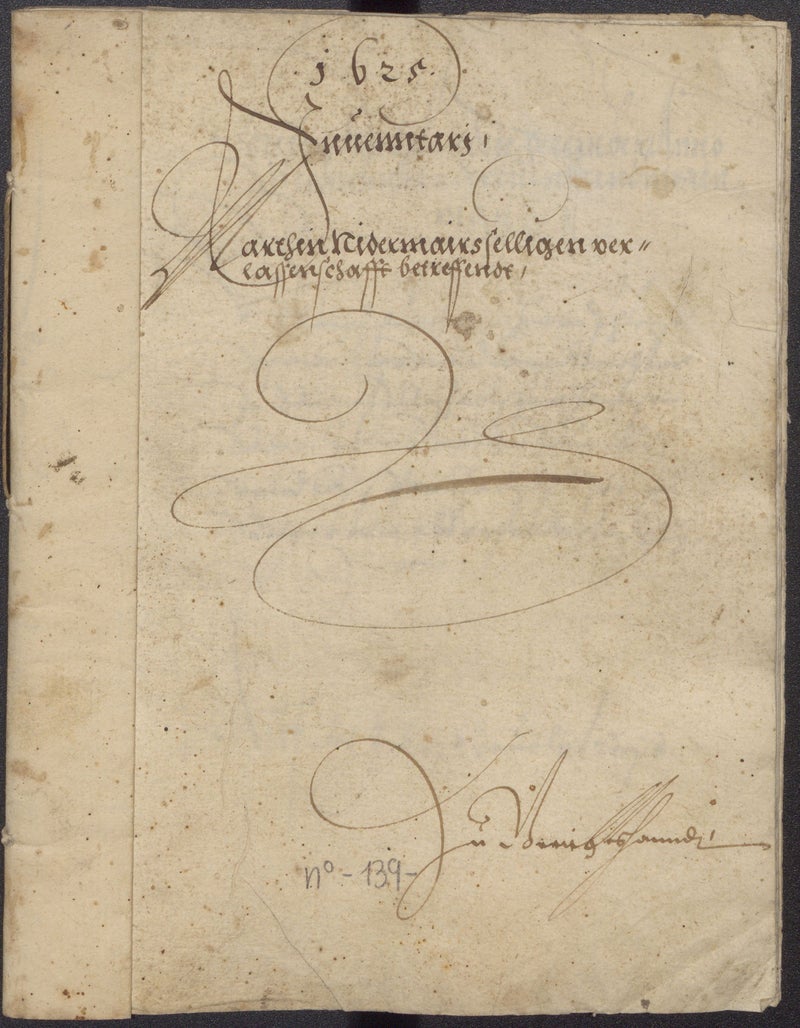 1625
Inuenntarj,
Marthin Nidermairs selligen ver=
lassenschafft betreffendt,
Zu Gerichtshannden
nº - 139 -